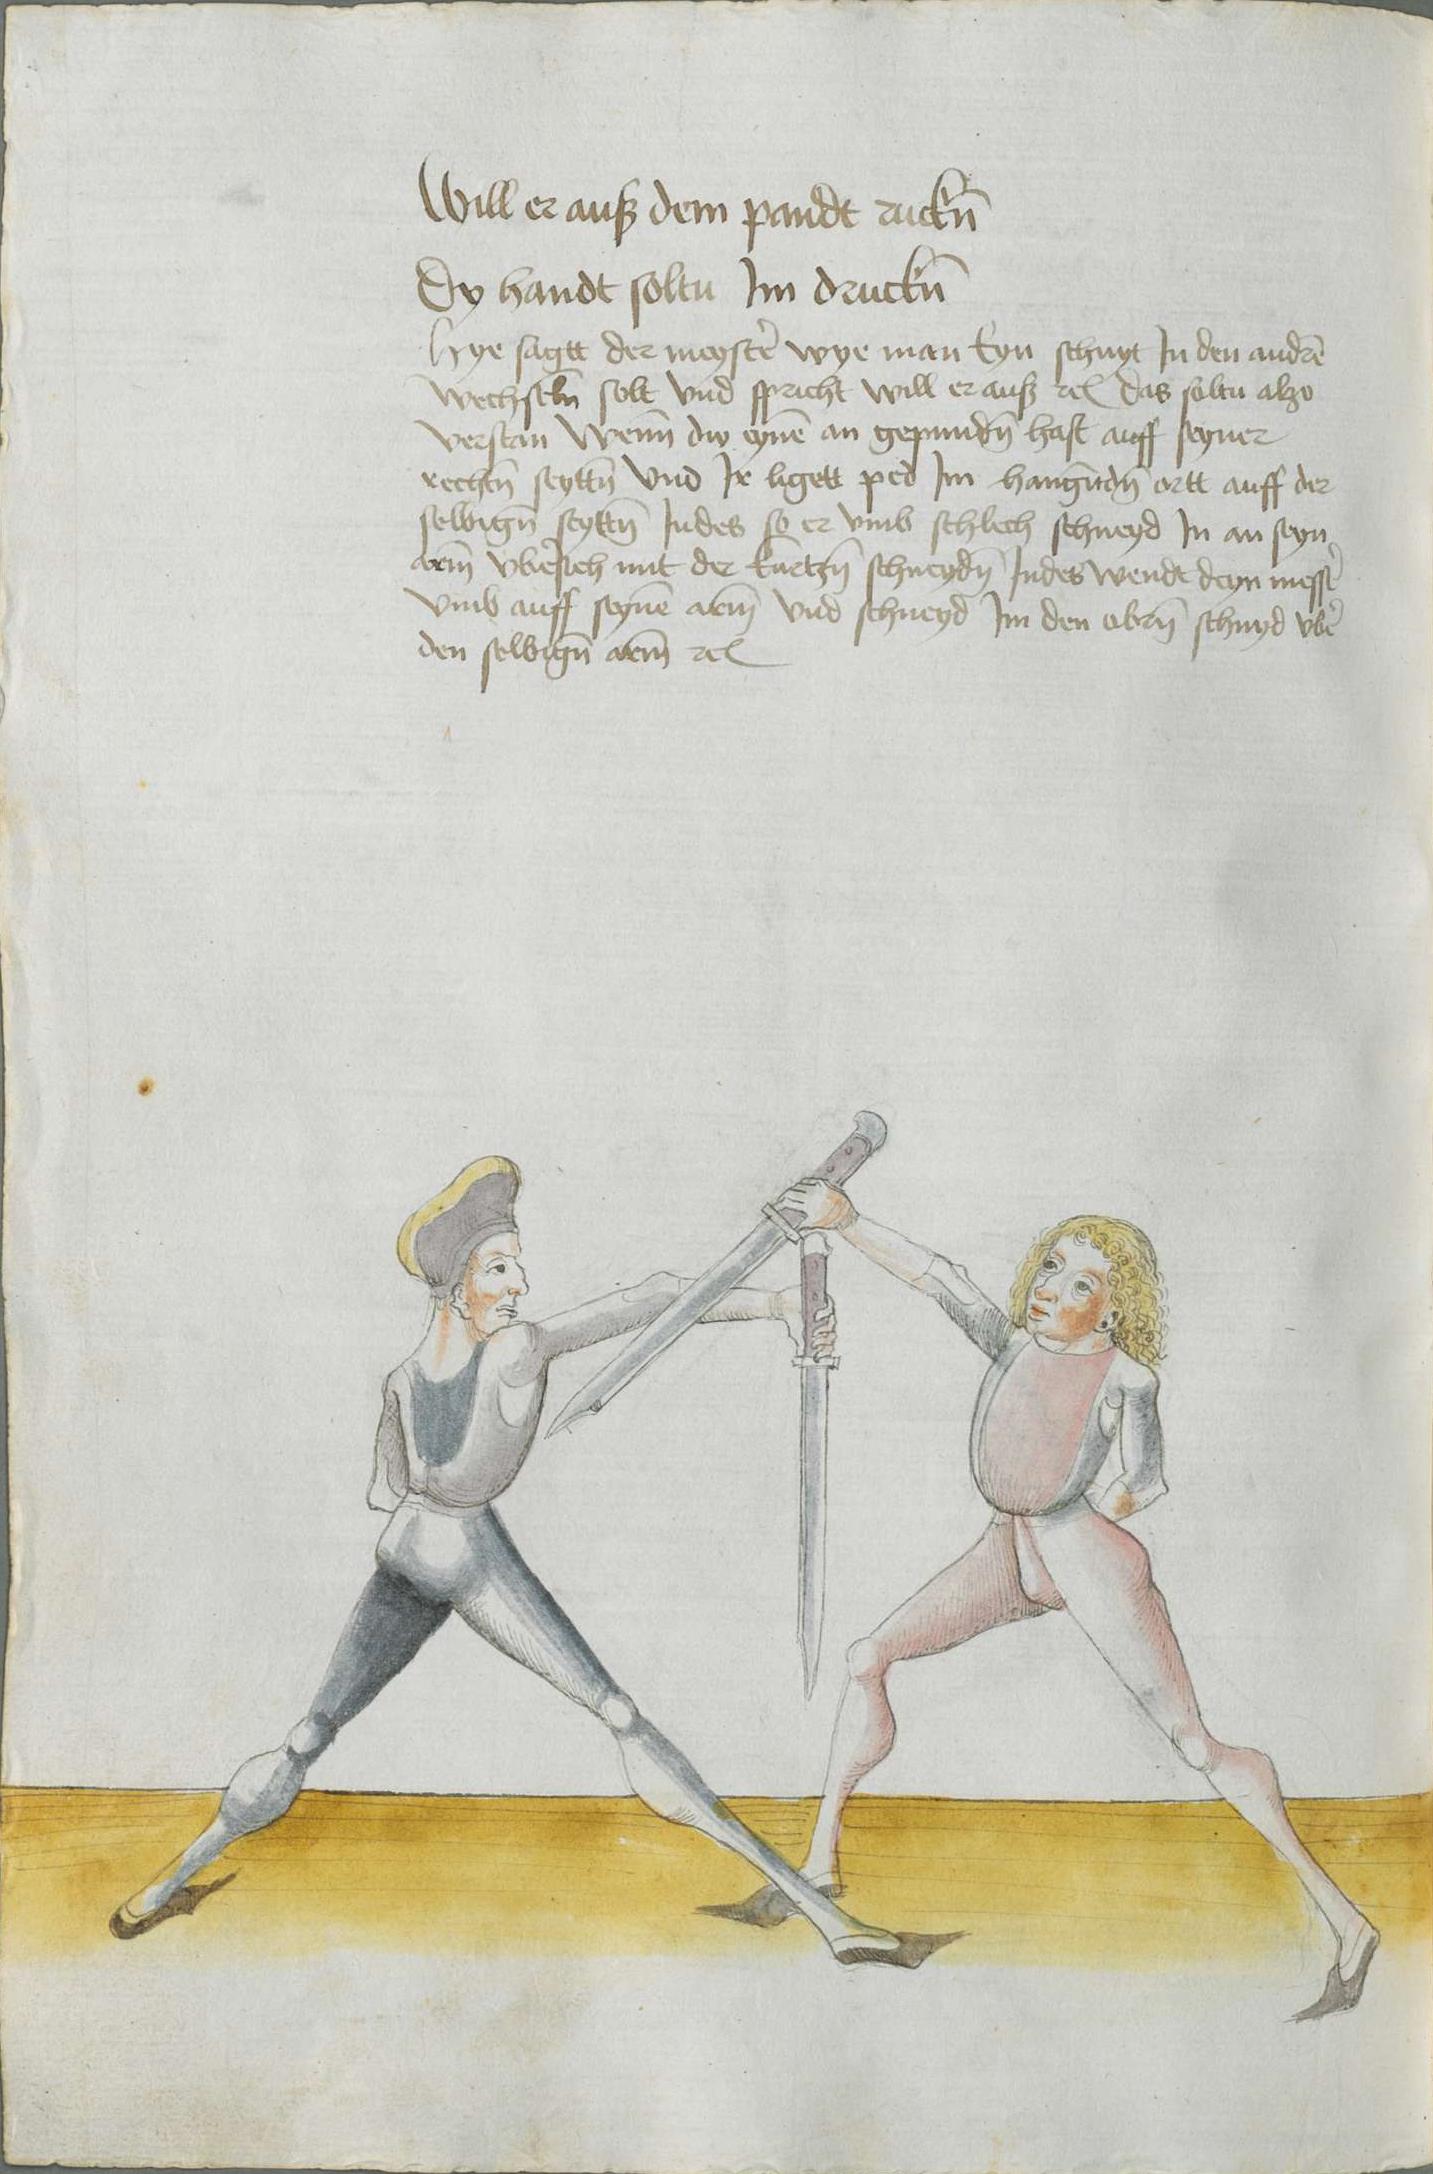 Will er auß dem pandt ruckn̄
Dy handt soltu Im druckn̄
Hye sagtt der meystẻ wye man Eyn schnyt In den andrē
wechseln̄ solt vnd spricht will er auß ⁊c das soltu alzo
verstan Wenn̄ dw eynē an gepundn̄ hast auff seyner
rechtn̄ seyttn̄ Vnd Ir ligett ped Im hangn̄dn̄ ortt auff der
selbign̄ seyttn̄ Indes so er vmb schlech schneyd In an seyn
arm̄ vbe͛sich mit der kurtzn̄ schneydn̄ Indes wendt deyn messe͛
vmb auff seynē arm̄ vnd schneyd Im den obrn̄ schnyd vbe͛
den selbign̄ arm̄ ⁊c